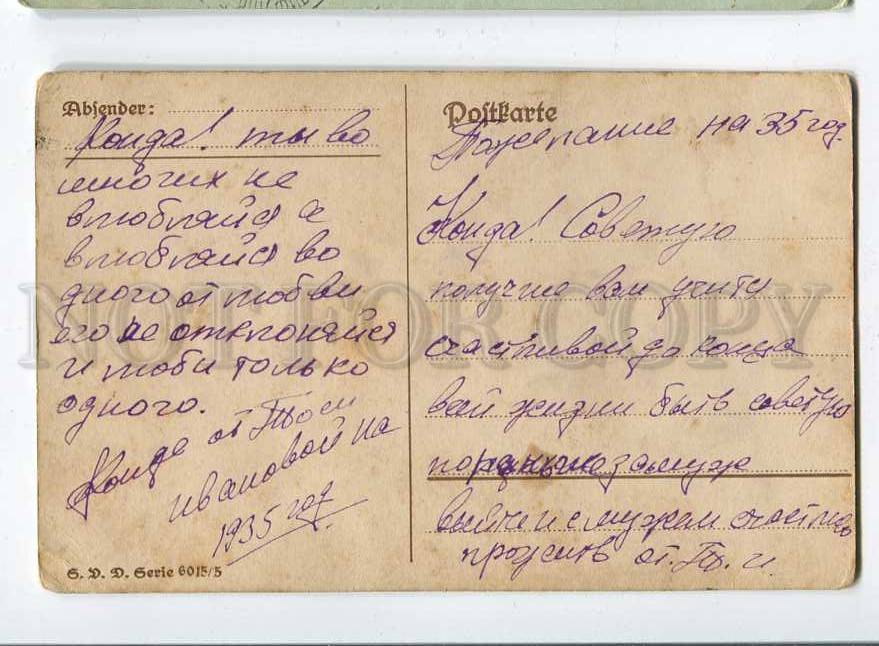 Absender:
Конда! ты во
многих не
влюбляйся а
влюбляйся во
дного от любви
его не отклоняйся
и люби только
одного.
Конде от Тоси
ивановой на
1935 год
S. V. D. Serie 6015/5
Postkarte
Пожелание на 35 год.
Конда! Советую
получше вам учится
счастливой до конца
всей жизни быть советую
замуж
выйти и с мужем счастливо
прожить от. Т. и.
NOT FOR COPY